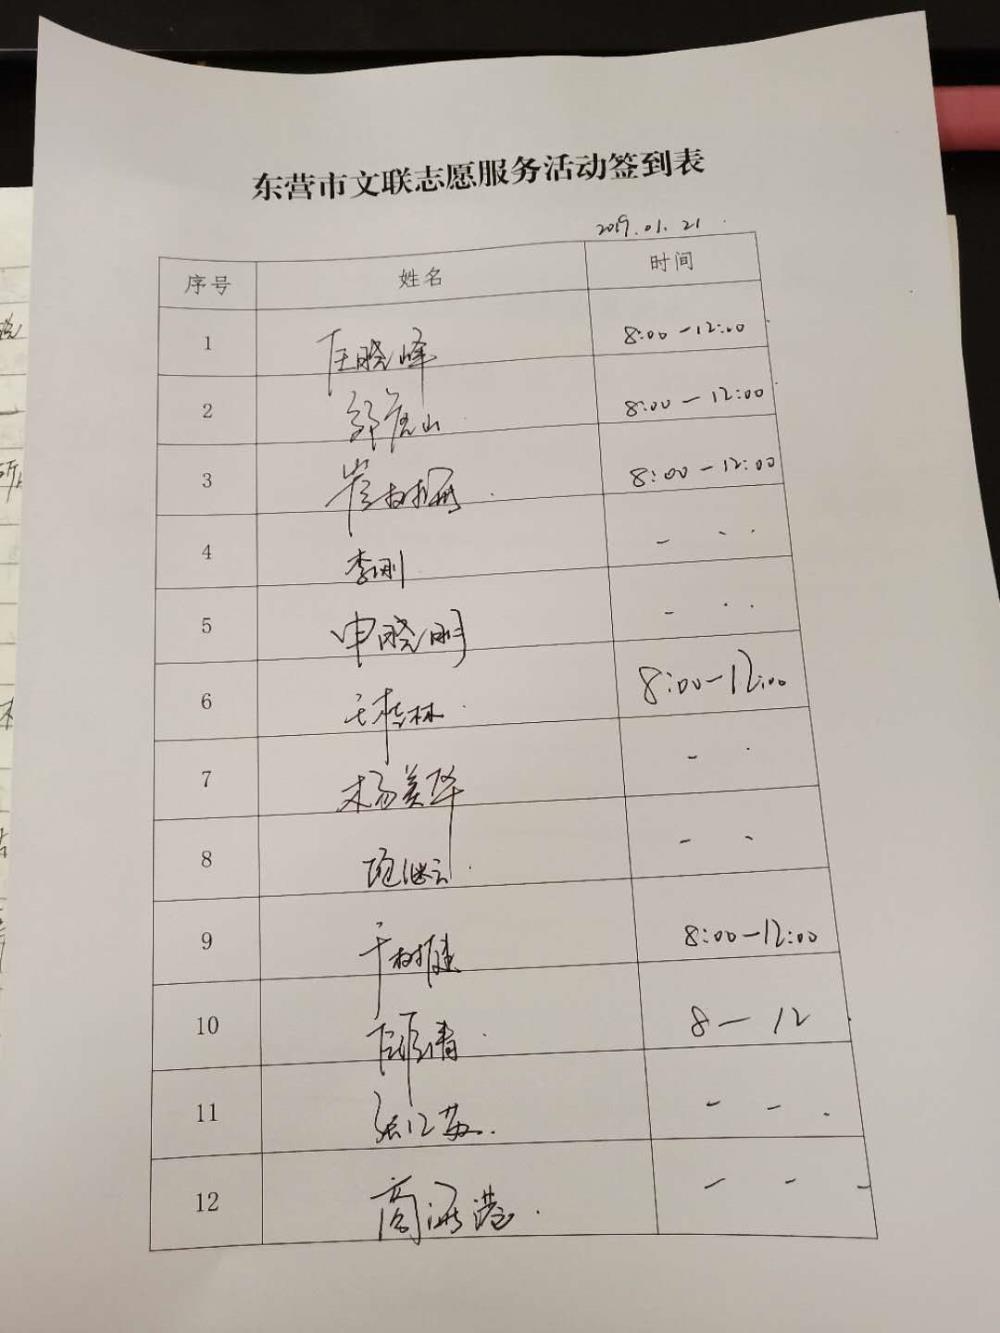 东营市文联志愿服务活动签到表
2019.01.21
序号 姓名 时间
1 任晓峰 8:00-12:00
2 8:00-12:00
3 8:00-12:00
4 李刚 - - -
5 申晓明 - - -
6 王桂林 8:00-12:00
7 杨美华 - -
8 - -
9 于树健 8:00-12:00
10 8-12
11 - - -
12 商海港 - - -